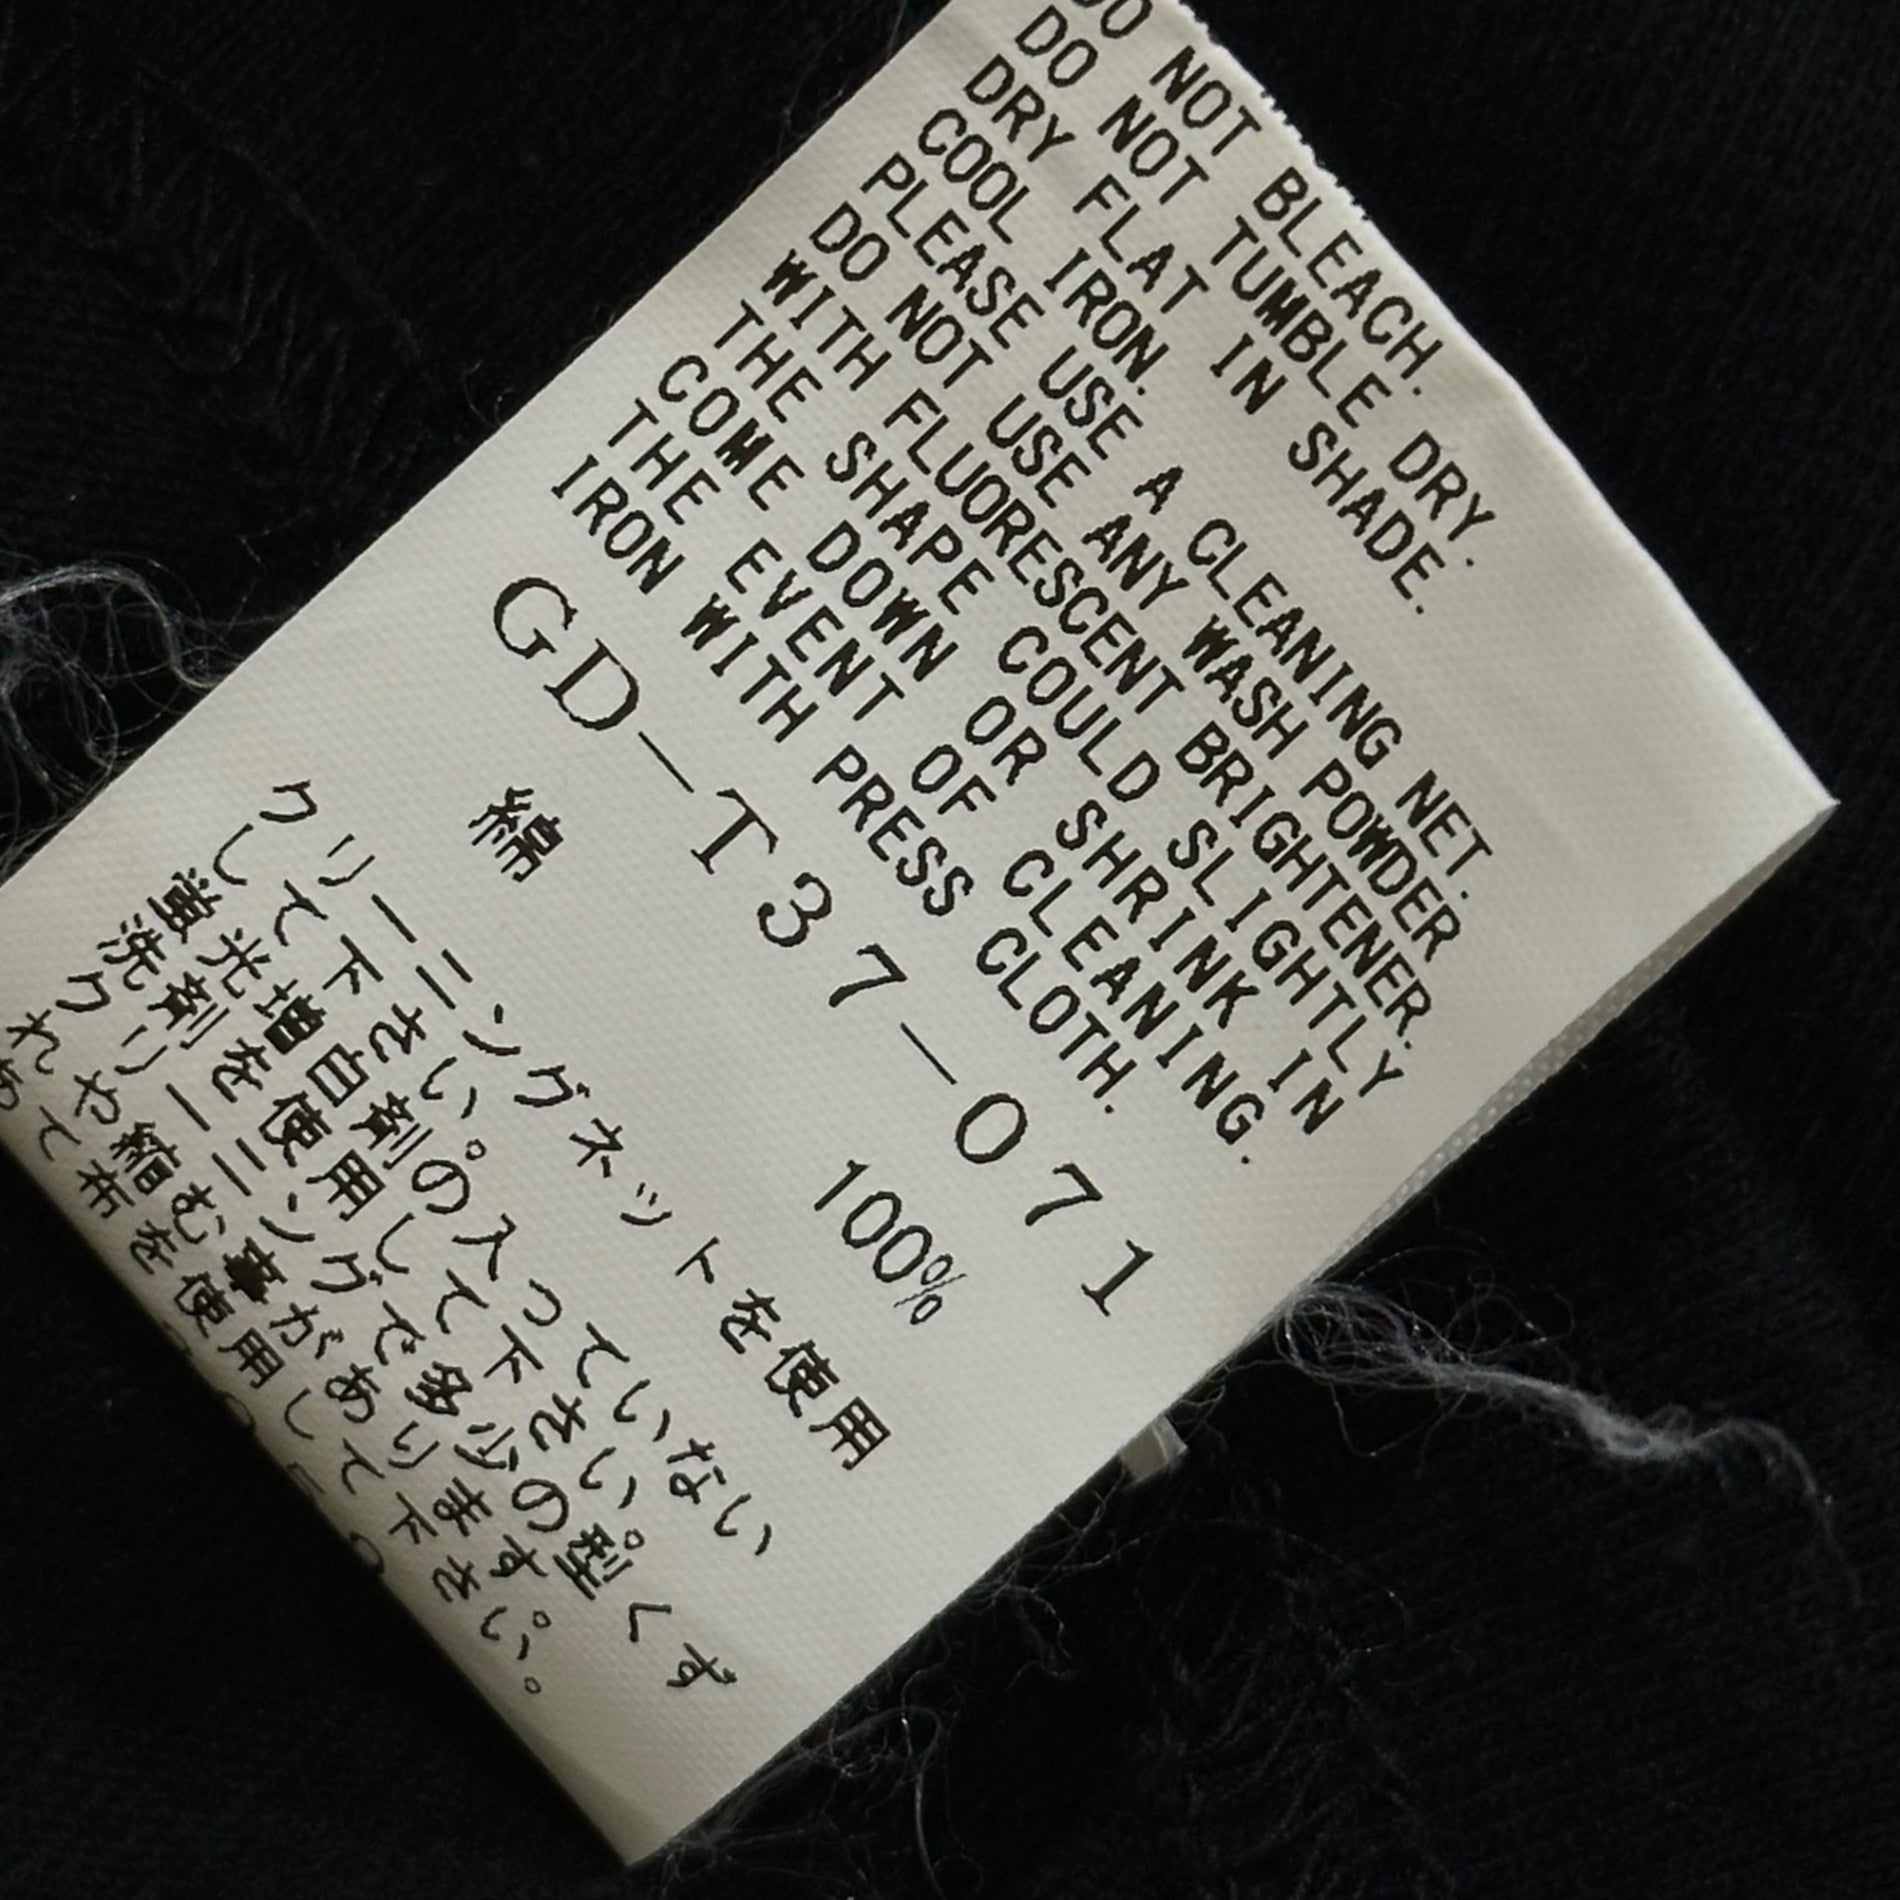 DO NOT BLEACH.
DO NOT TUMBLE DRY.
DRY FLAT IN SHADE.
COOL IRON.
PLEASE USE A CLEANING NET.
DO NOT USE ANY WASH POWDER
WITH FLUORESCENT BRIGHTENER.
THE SHAPE COULD SLIGHTLY
COME DOWN OR SHRINK IN
THE EVENT OF CLEANING.
IRON WITH PRESS CLOTH.
GD-T37-071
綿 100%
クリーニングネットを使用
して下さい。
蛍光増白剤の入っていない
洗剤を使用して下さい。
クリーニングで多少の型くず
れや縮む事があります。
あて布を使用して下さい。